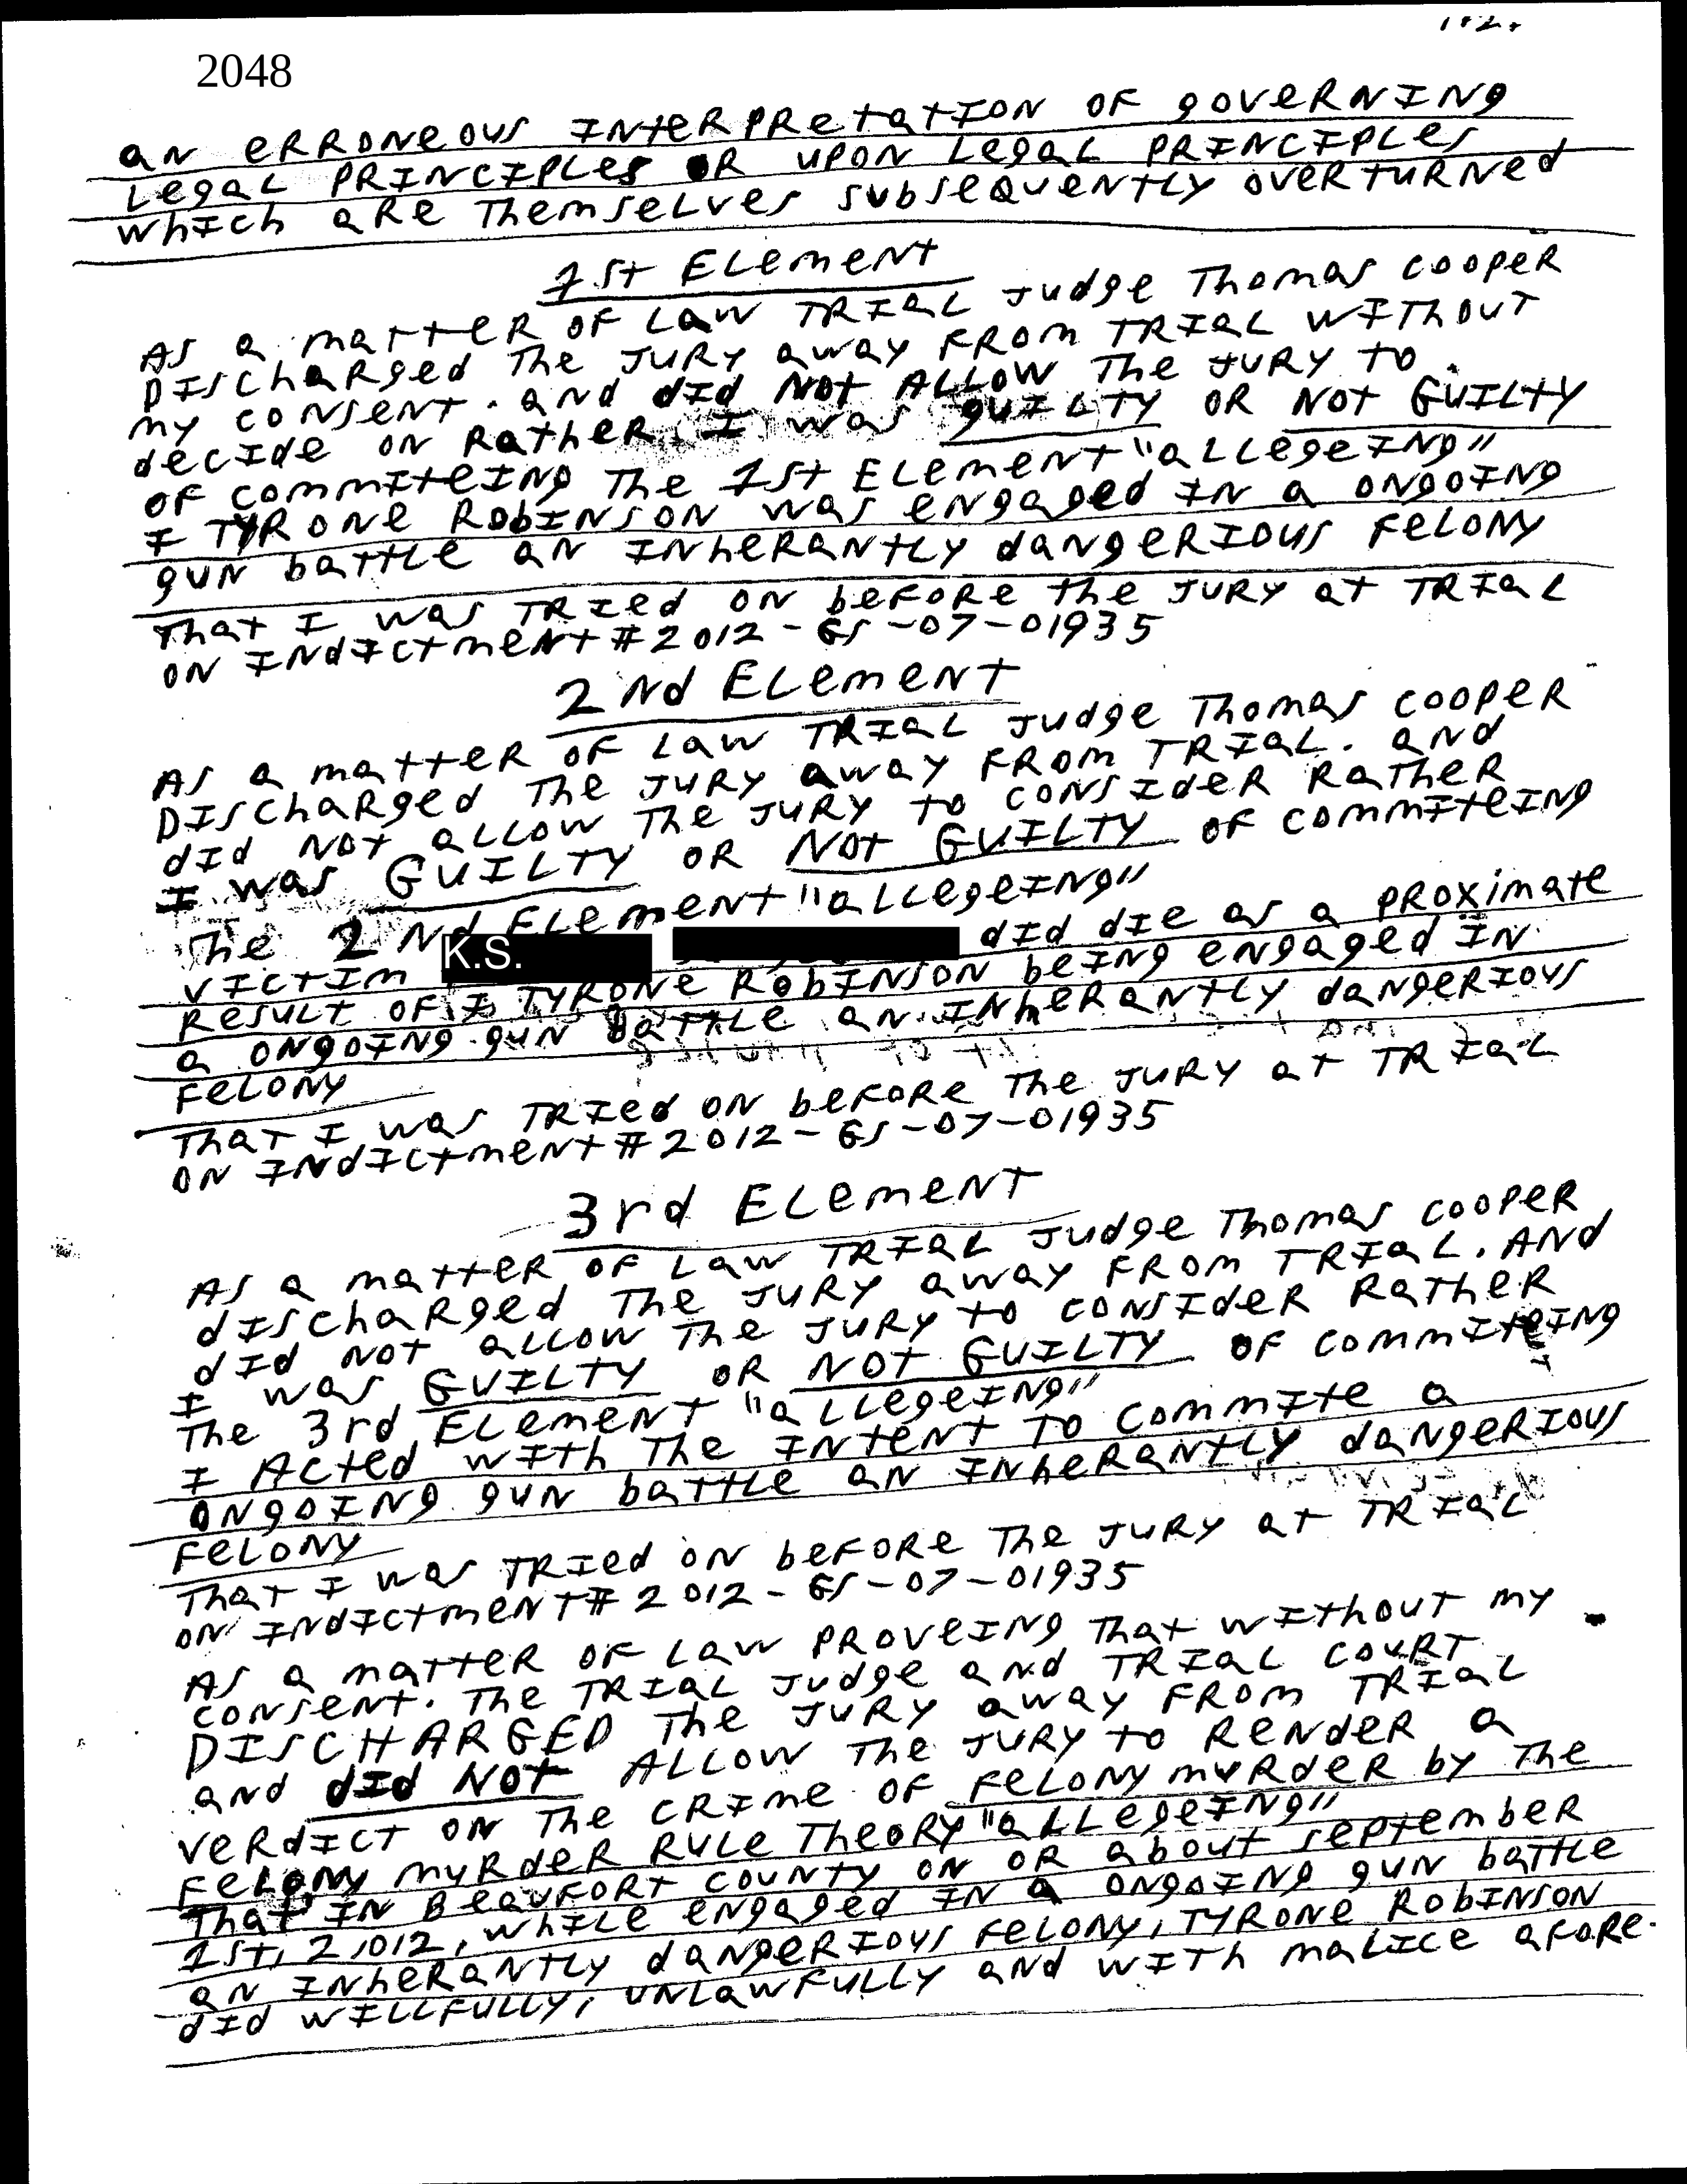 182.
2048
an ERRONEOUS INteRPRetatION OF governING
LegaL PRINCIPLes OR UPON LegaL PRINCIPLes
which aRe ThemseLves subseQuentLy overturned
1st ELement
AS a matteR OF Law TRIaL Judge Thomas cooPeR
DIschaRged The JURY away FROm TRIaL WIThOUT
my consent. and did Not ALLow The JuRy To
decide on RatheR I was guILTY OR NOT GUILTY
OF commIteINg The 1st ELement "aLLegeINg"
I TYRONE RobINSON was engaged IN a ongoINg
gun battLe an INheRantLy dangeRIous FeLony
That I was TRIed on beFoRe the JURY at TRIaL
ON INdIctment # 2012-GS-07-01935
2Nd ELement
AS a matteR OF Law TRIaL Judge Thomas cooPeR
DIschaRged The JURY away FROm TRIaL. and
did Not aLLow The JuRy To consIdeR RatheR
I was GUILTY OR Not GUILTY OF commIteINg
The 2Nd ELement "aLLegeINg"
vIctIm K.S. did die as a PRoximate
ResuLt OF I TYRONE RobINSON beINg engaged IN
a ongoINg gun battLe an INheRantLy dangeRIous
FeLony
That I was TRIed on beFoRe The JuRy at TRIaL
ON INdIctment # 2012-GS-07-01935
3rd ELement
AS a matteR OF Law TRIaL Judge Thomas cooPeR
dIschaRged The JURY away FROm TRIaL. And
did Not aLLow The JuRy To consIdeR RatheR
I was GUILTY OR NOT GUILTY OF commIteINg
The 3rd ELement "aLLegeINg"
I Acted wITh The INTENT To commIte a
ongoINg gun battLe an INheRantLy dangeRIous
FeLony
That I was TRIed on beFoRe The JuRy at TRIaL
ON INdIctment # 2012-GS-07-01935
AS a matteR OF Law PRoveINg That wIthout my
consent. The TRIaL Judge and TRIaL couRT
DISCHARGED The JuRy away FRom TRIaL
and did Not ALLow The JuRy To RendeR a
veRdIct on The cRIme OF FeLony muRdeR by The
FeLony muRdeR RuLe TheoRy "aLLegeINg"
That IN BeauFoRt county on OR about september
1st, 2,012, whILe engaged IN a ongoINg gun battLe
an INheRantLy dangeRIous FeLony, TYRONE RobINSON
did wILLFuLLy, unLawFuLLy and wITh maLIce aFoRe-